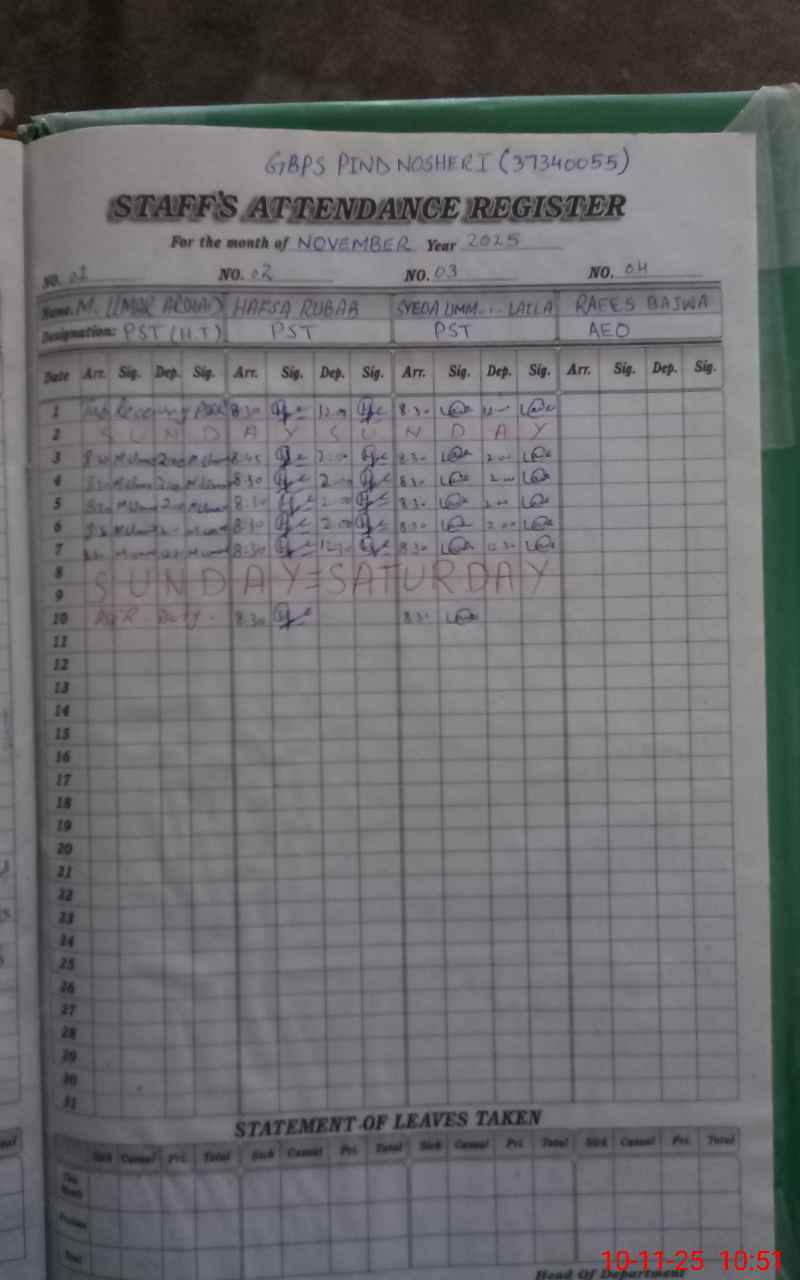 GBPS PIND NOSHERI (37340055)
STAFF'S ATTENDANCE REGISTER
For the month of NOVEMBER Year 2025
NO. 01 NO. 02 NO. 03 NO. 04
Name: M. UMAR ARSHAD HAFSA RUBAB SYEDA UMM... LAILA RAEES BAJWA
Designation: PST (H.T) PST PST AEO
Date Arr. Sig. Dep. Sig. Arr. Sig. Dep. Sig. Arr. Sig. Dep. Sig. Arr. Sig. Dep. Sig.
1 Receiving 8:30 8:30
2 S U N D A Y S U N D A Y
3 8:45 2:00 8:30 2:00
4 8:30 2:00 8:30 2:00
5 8:30 2:00 8:30 2:00
6 8:30 2:00 8:30 2:00
7 8:30 12:30 8:30 12:30
8 SUNDAY = SATURDAY
9
10 Duty. 8:30 8:30
11
12
13
14
15
16
17
18
19
20
21
22
23
24
25
26
27
28
29
30
31
STATEMENT OF LEAVES TAKEN
Sick Casual Pri. Total Sick Casual Pri. Total Sick Casual Pri. Total Sick Casual Pri. Total
This Month
Total
Head Of Department
10-11-25 10:51